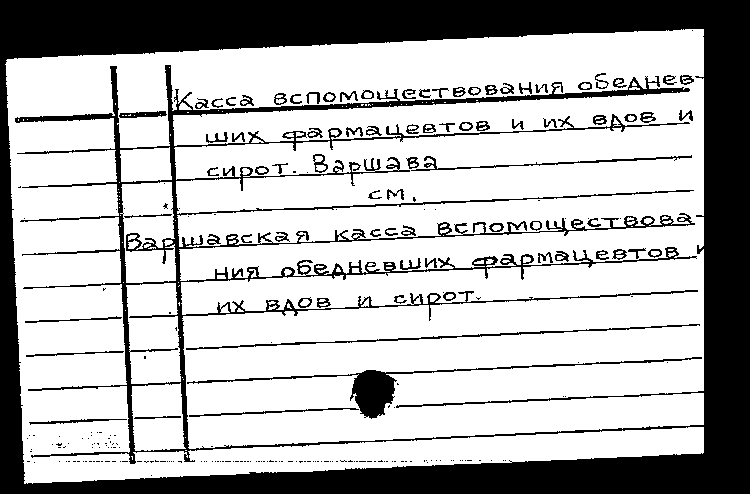 Касса вспомоществования обеднев-
ших фармацевтов и их вдов и
сирот. Варшава
см.
Варшавская касса вспомоществова-
ния обедневших фармацевтов и
их вдов и сирот.